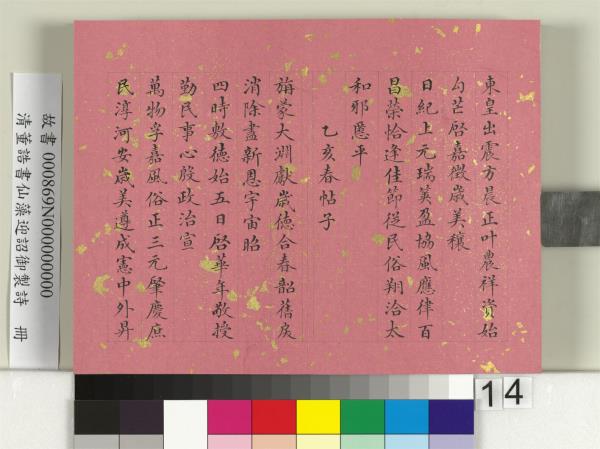 東皇出震方晨正叶農祥資始
勾芒啓嘉徵歲美穰
日紀上元瑞莢盈協風應律百
昌榮恰逢佳節從民俗翔洽太
和邪慝平
乙亥春帖子
旃蒙大淵獻歲德合春韶舊戾
消除盡新恩宇宙昭
四時敷德始五日啓華年敬授
勤民事心殷政治宣
萬物孚嘉風俗正三元肇慶庶
民淳河安歲美遵成憲中外昇
故書 000869N000000000
清董誥書仙藻迎詔御製詩 冊
14